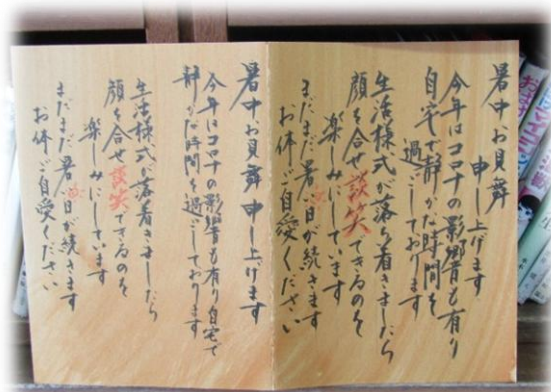 暑中お見舞
申し上げます
今年はコロナの影響も有り
自宅で静かな時間を
過ごしております
生活様式が落ち着きましたら
顔を合せ談笑できるのを
楽しみにしています
まだまだ暑い日が続きます
お体ご自愛ください
暑中お見舞申し上げます
今年はコロナの影響も有り自宅で
静かな時間を過ごしております
生活様式が落着きましたら
顔を合せ談笑できるのを
楽しみにしています
まだまだ暑い日が続きます
お体ご自愛ください